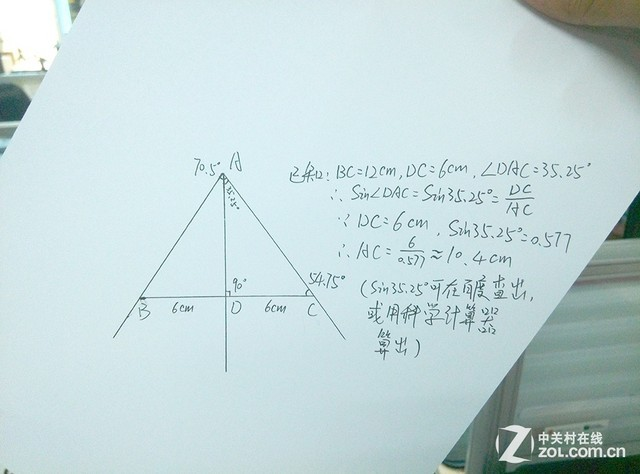 70.5° A
35.25°
90°
54.75°
B 6cm D 6cm C
已知: BC=12cm, DC=6cm, ∠DAC=35.25°
∴ Sin∠DAC=Sin35.25°=DC/AC
∵ DC=6cm, Sin35.25°=0.577
∴ AC=6/0.577≈10.4cm
(Sin35.25°可在百度查出,
或用科学计算器
算出)
中关村在线
ZOL.COM.CN